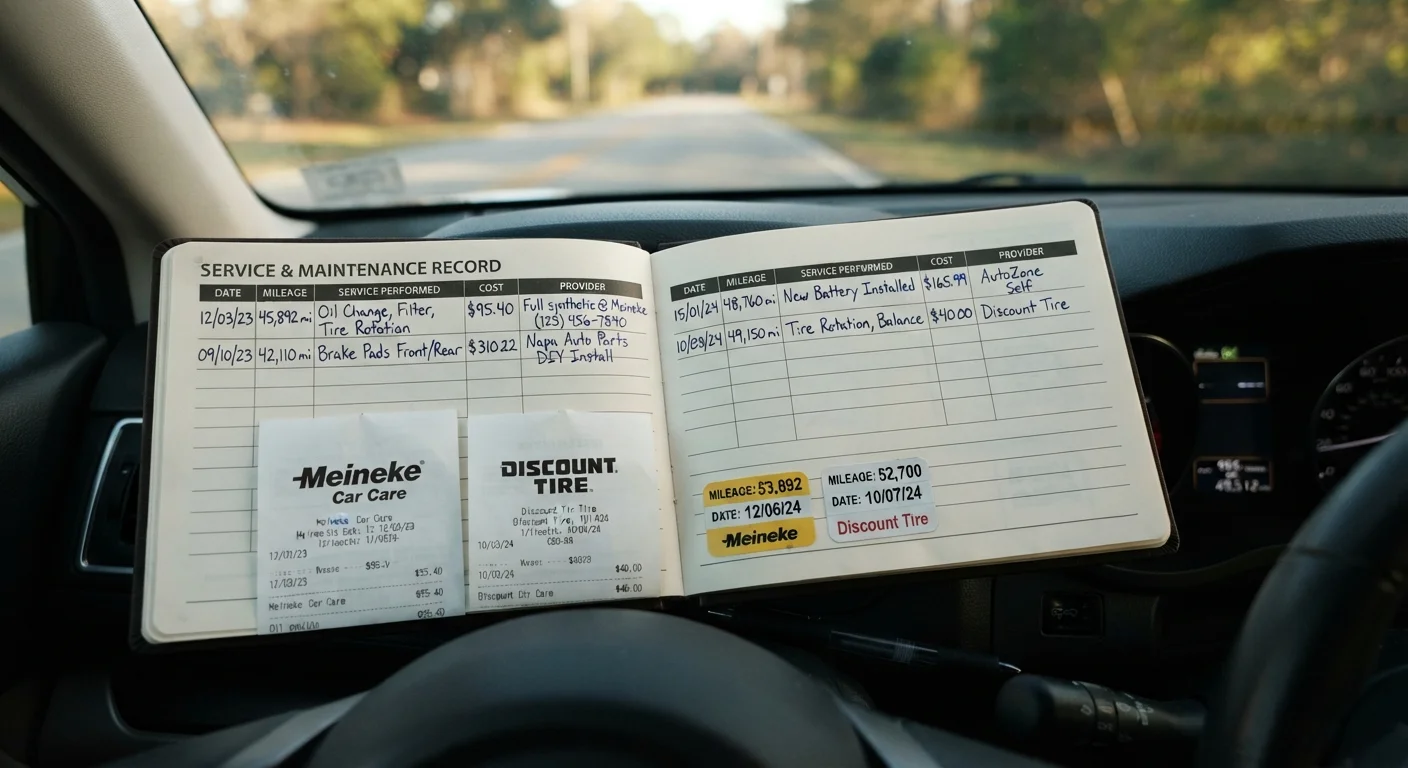 SERVICE & MAINTENANCE RECORD
DATE MILEAGE SERVICE PERFORMED COST PROVIDER
12/03/23 45,892 mi Oil Change, Filter, $95.40 Full synthetic @ Meineke
Tire Rotation (125) 456-7840
09/10/23 42,110 mi Brake Pads Front/Rear $310.22 Napa Auto Parts
DIY Install
Meineke®
Car Care
12/01/23
$95.40
Meineke Car Care
DISCOUNT
TIRE
10/03/24
10/02/24 $40.00
DATE MILEAGE SERVICE PERFORMED COST PROVIDER
15/01/24 48,760 mi New Battery Installed $165.99 AutoZone
Self
49,150 mi Tire Rotation, Balance $40.00 Discount Tire
MILEAGE: 53,892
DATE: 12/06/24
Meineke
MILEAGE: 52,700
DATE: 10/07/24
Discount Tire